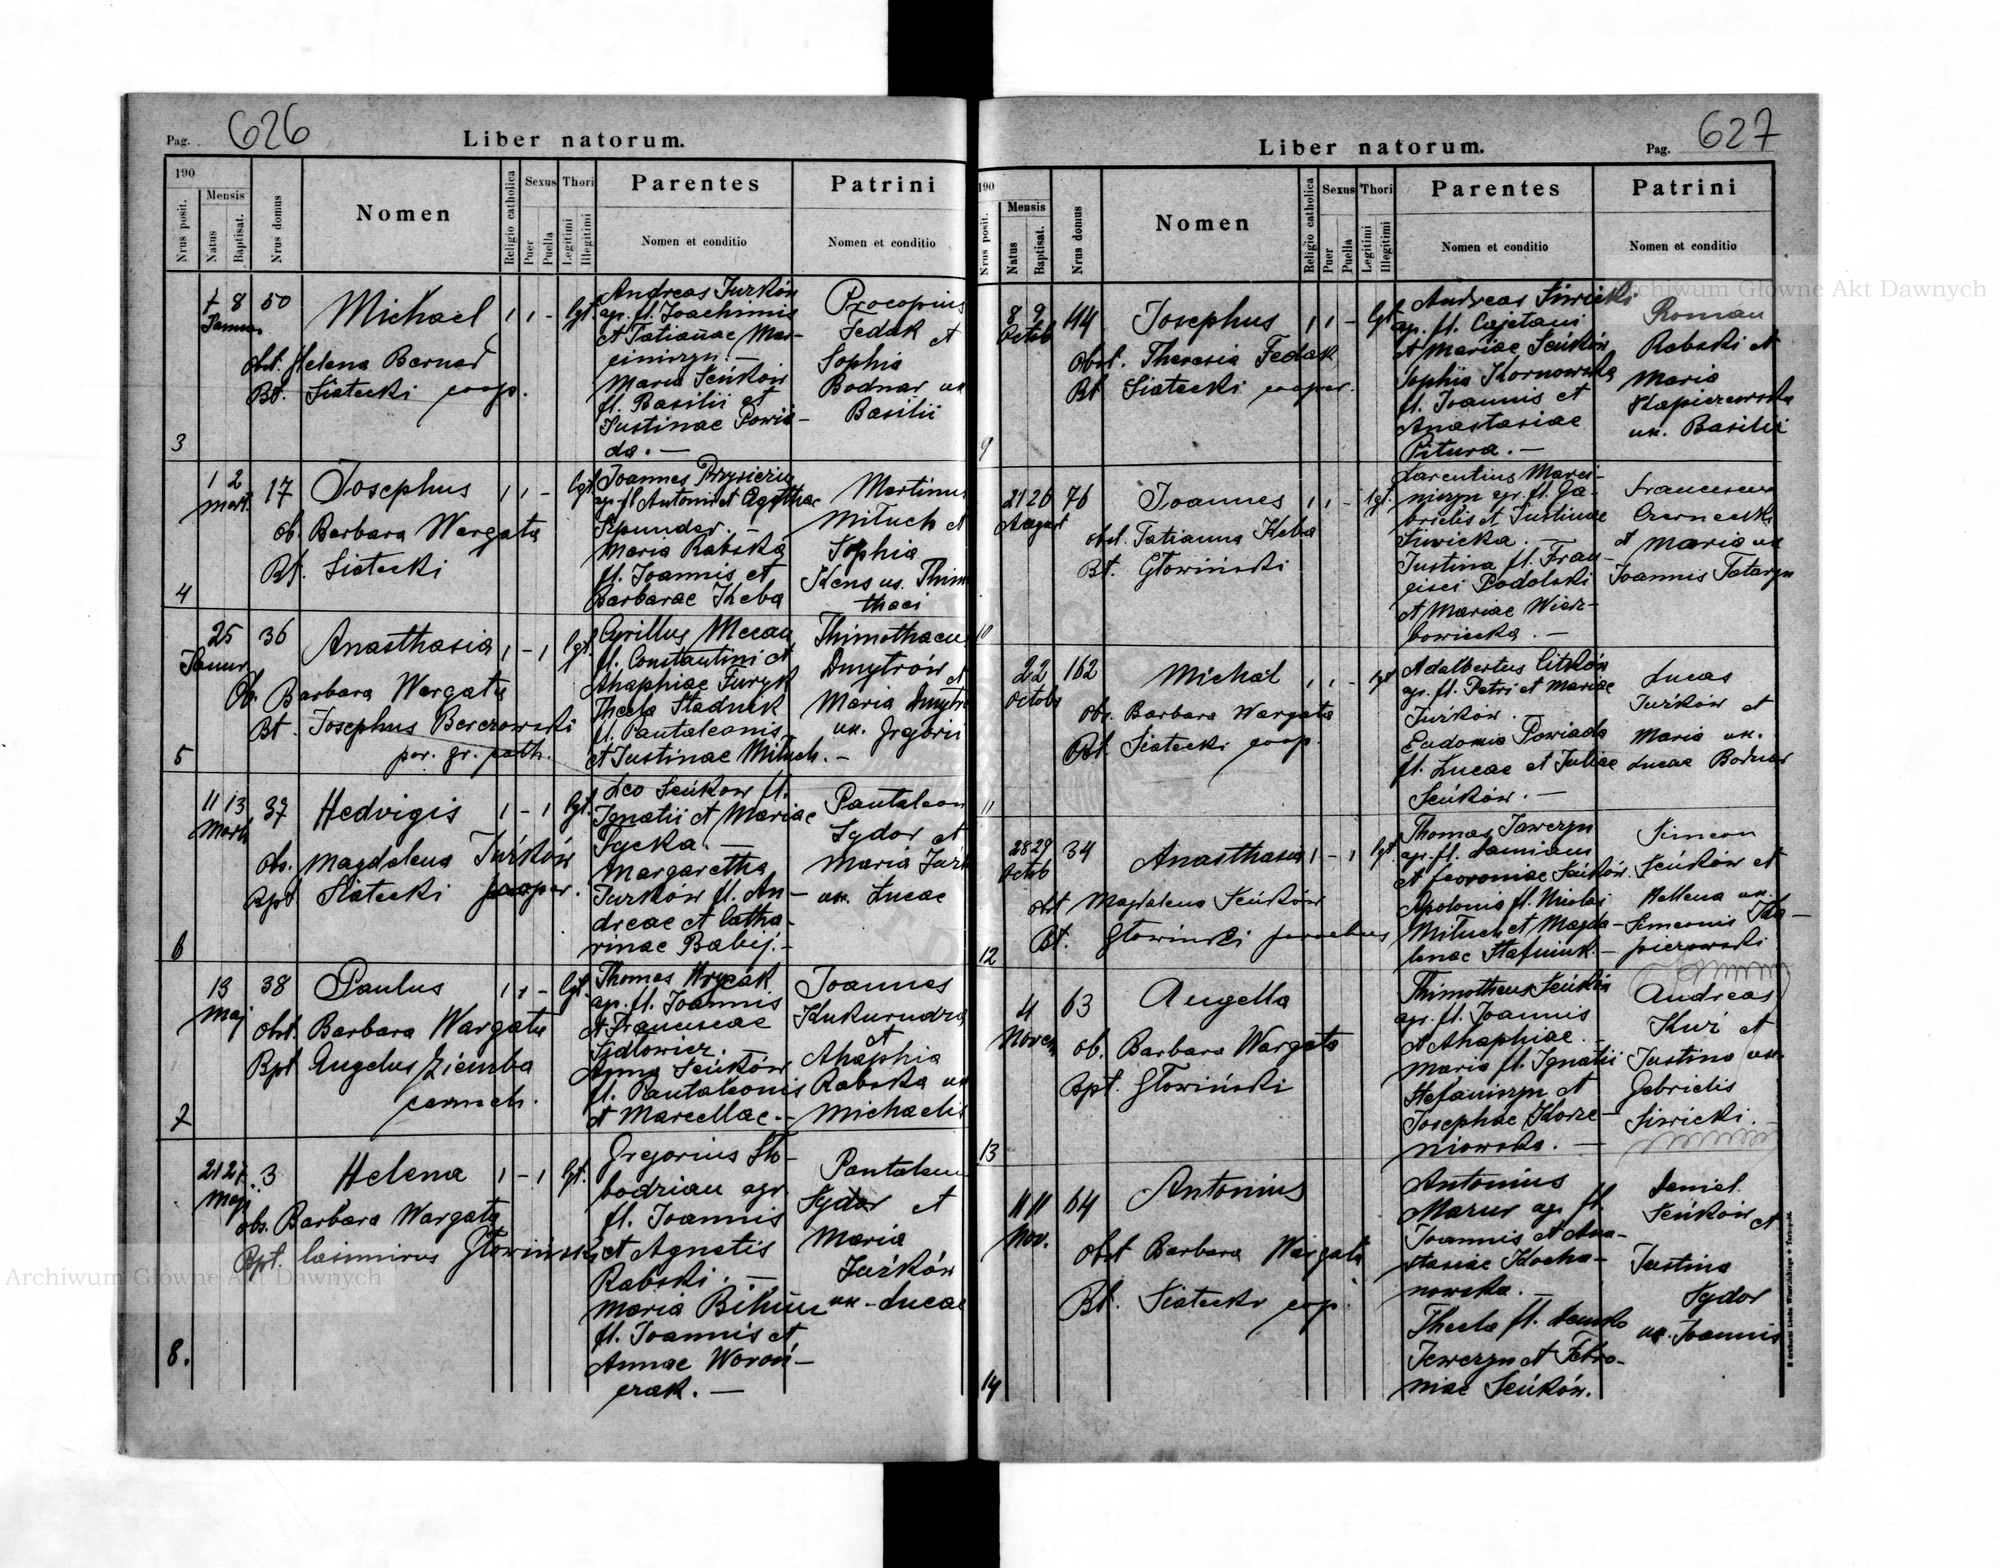 Pag. 626
Liber natorum.
190
Nrus posit.
Mensis
Natus
Baptisat.
Nrus domus
Nomen
Religio catholica
Sexus
Puer
Puella
Thori
Legitimi
Illegitimi
Parentes
Nomen et conditio
Patrini
Nomen et conditio
3
7 8
Januar.
50
Michael
1 1 - lgt.
obst. Helena Bernad
Bt. Siatecki coop.
Andreas Jurków
agr. fl. Joachimis
et Tatianae Mar-
ciniszyn. -
Maria Seńków
fl. Basilii et
Justinae Powia-
da. -
Procopius
Fedak et
Sophia
Bodnar ux
Basilii
4
1 2
Mart.
17
Josephus
1 1 - lgt.
ob. Barbara Wargata
Bt. Siatecki
Joannes
agr. fl. Antoni et Agathae
Maria Rabska
fl. Joannis et
Barbarae Keba
Martinus
Mituch et
Sophia
Kens ux. Thim
thaei
5
25
Januar
36
Anasthasia
1 - 1 lgt.
Ob. Barbara Wargata
Bt. Josephus Berezowski
par. gr. cath.
Cyrillus
fl. Constantini et
Ahaphiae Furyk
Thecla Stadnik
fl. Pantaleonis
et Justinae Mituch. -
Thimothaeu
Dmytrów et
Maria Dmytr
ux. Gregorii
6
11 13
Marti
37
Hedvigis
1 - 1 lgt.
obs. Magdalena Jurków
Bpt Siatecki cooper.
Leo Seńkow fl.
Ignatii et Mariae
Margaretha
Jurków fl. An-
dreae et Catha-
rinae Babij. -
Pantaleon
Sydor et
Maria Jurk
ux. Lucae
7
13
Maj
38
Paulus
1 1 - lgt.
obst. Barbara Wargata
Bpt Angelus Ziemba
Thomas
agr. fl. Joannis
et Franciscae
Anna Seńków
fl. Pantaleonis
et Marcellae. -
Joannes
Kukurudza
et
Ahaphia
Rabska ux
Michaelis
8.
21 27
Maj.
3
Helena
1 - 1 lgt.
obs. Barbara Wargata
Bpt. Casimirus Głowiński
Gregorius Sło-
bodzian agr.
fl. Joannis
et Agnetis
Rabski. -
Maria
fl. Joannis et
Annae Woroń-
czak. -
Pantaleon
Sydor et
Maria
Jurków
ux. Lucae
Liber natorum.
Pag. 627
190
Nrus posit.
Mensis
Natus
Baptisat.
Nrus domus
Nomen
Religio catholica
Sexus
Puer
Puella
Thori
Legitimi
Illegitimi
Parentes
Nomen et conditio
Patrini
Nomen et conditio
9
8 9
Octob
44
Josephus
1 1 - lgt.
Obst. Theresia Fedak
Bt Siatecki cooper.
Andreas Siwicki
agr. fl. Cajetani
et Mariae Seńków
Sophia Kornowska
fl. Joannis et
Anastasiae
Pitura. -
Roman
Rabski et
Maria
ux. Basilii
10
21 26
August
76
Joannes
1 1 - lgt.
obst. Tatianna Keba
Bt. Głowiński
Laurentius Marci-
niszyn agr. fl. Ga-
brielis et Justinae
Siwicka. -
Justina fl. Fran-
cisci Podolski
et Mariae Wierz-
bowiecka. -
Franciscus
Czernecki
et Maria ux
Joannis Tataryn
11
22
Octobr
162
Michał
1 1 - lgt
obs. Barbara Wargata
Bt. Siatecki coop.
Adalbertus
agr. fl. Petri et Mariae
Jurków. -
Eudomia Powiada
fl. Lucae et Juliae
Seńków. -
Lucas
Jurków et
Maria ux.
Lucae Bodnar
12
28 29
Octob
34
Anasthasia
1 - 1 lgt.
obst Magdalena Seńków
Bt. Głowiński parochus
Thomas Jaweryn
agr. fl. Damiani
et Seńków.
Apolonia fl. Nicolai
Mituch et Magda-
lenae
Simeon
Seńków et
Hellena ux.
Simeonis
13
4
Novem
63
Angella
ob. Barbara Wargata
Bpt. Głowiński
Thimotheus Seńków
agr. fl. Joannis
et Ahaphiae. -
Maria fl. Ignatii
Stefaniszyn et
Josephae Korze-
niowska. -
Andreas
et
Justina ux.
Gabrielis
Siwicki. -
14
11 11
Nov.
64
Antonius
Obst Barbara Wargata
Bt. Siatecki coop.
Antonius
Mazur agr fl.
Joannis et Ana-
stasiae Kocha-
nowska. -
Thecla fl.
Jeweryn et Febro-
niae Seńków.
Daniel
Seńków et
Justina
Sydor
ux. Joannis
Archiwum Główne Akt Dawnych
Archiwum Główne Akt Dawnych